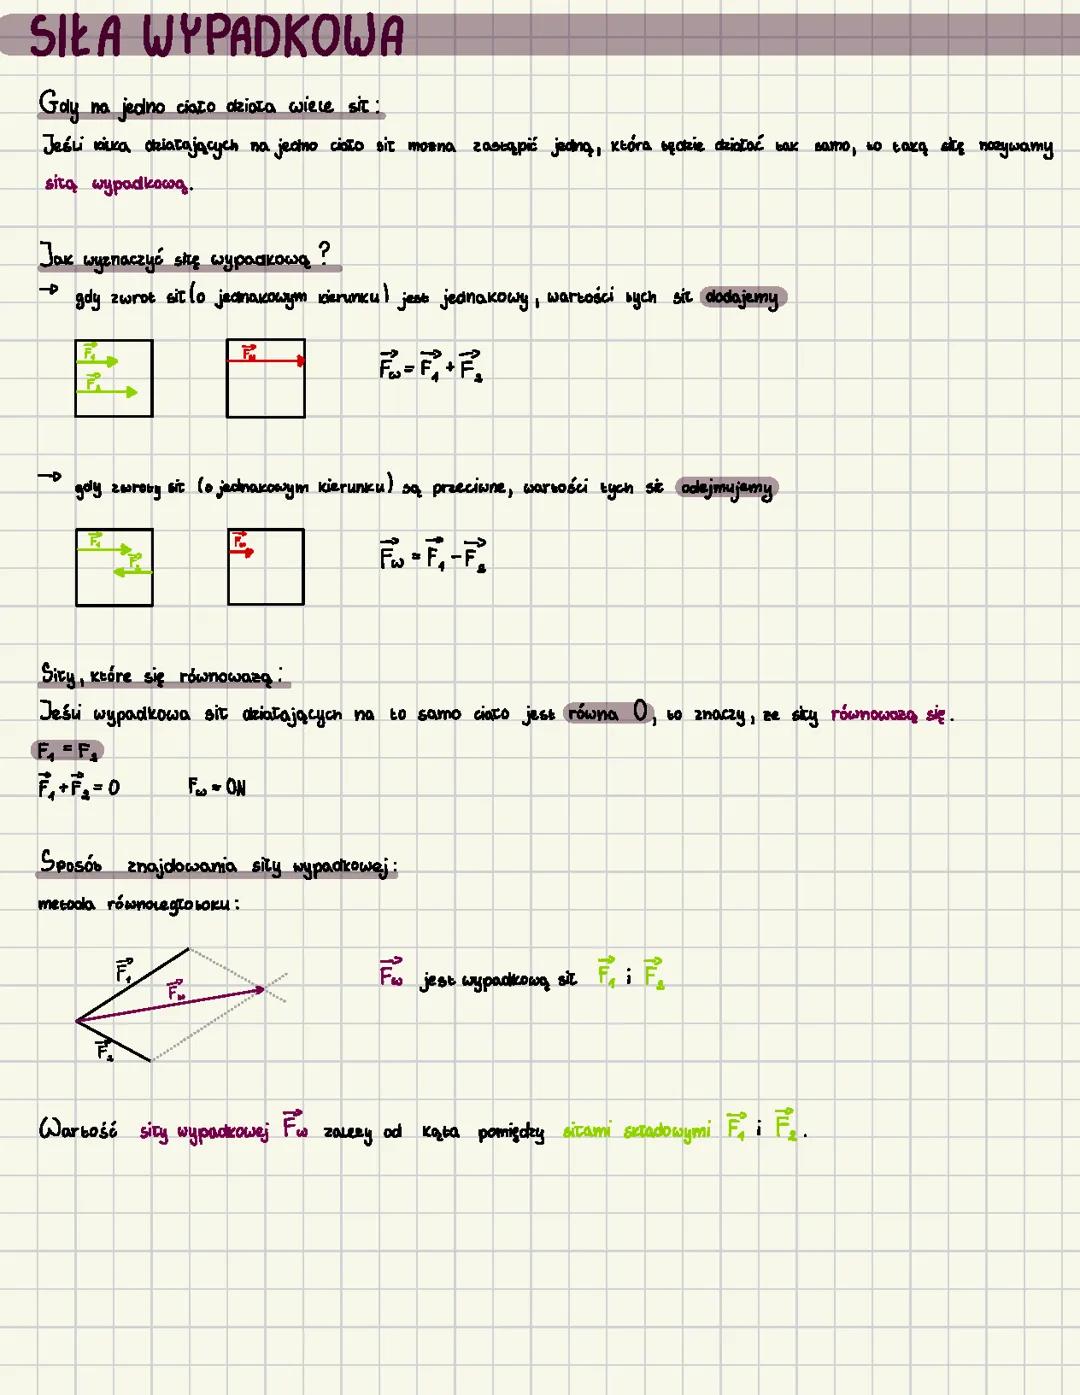 SIŁA WYPADKOWA
Gdy na jedno ciało działa wiele sił:
Jeśli kilka działających na jedno ciało sił można zastąpić jedną, która będzie działać tak samo, to taką siłę nazywamy
siłą wypadkową.
Jak wyznaczyć siłę wypadkową?
→ gdy zwrot sił (o jednakowym kierunku) jest jednakowy, wartości tych sił dodajemy
F₁ Fw F⃗w = F⃗₁ + F⃗₂
F₂
→ gdy zwroty sił (o jednakowym kierunku) są przeciwne, wartości tych sił odejmujemy
F₁ Fw F⃗w = F⃗₁ - F⃗₂
F₂
Siły, które się równoważą:
Jeśli wypadkowa sił działających na to samo ciało jest równa 0, to znaczy, że siły równoważą się.
F₁ = F₂
F⃗₁ + F⃗₂ = 0 Fw = 0N
Sposób znajdowania siły wypadkowej:
metoda równoległoboku:
F⃗₁
F⃗w F⃗w jest wypadkową sił F⃗₁ i F⃗₂
F⃗₂
Wartość siły wypadkowej F⃗w zależy od kąta pomiędzy siłami składowymi F⃗₁ i F⃗₂.